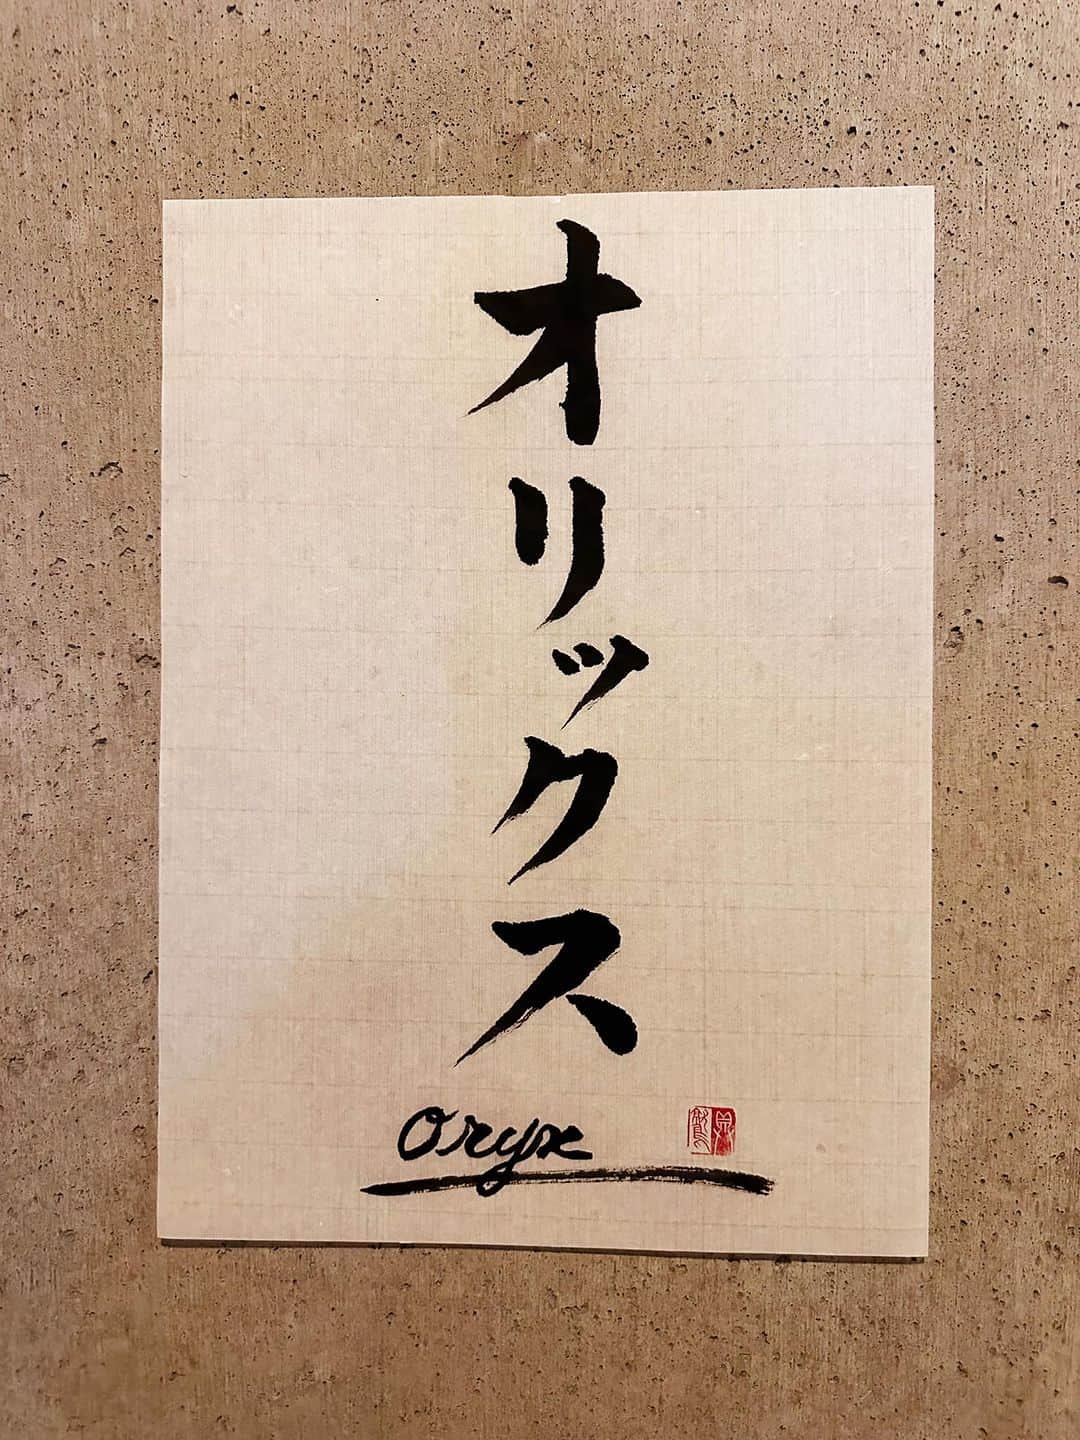 オリックス
Oryx